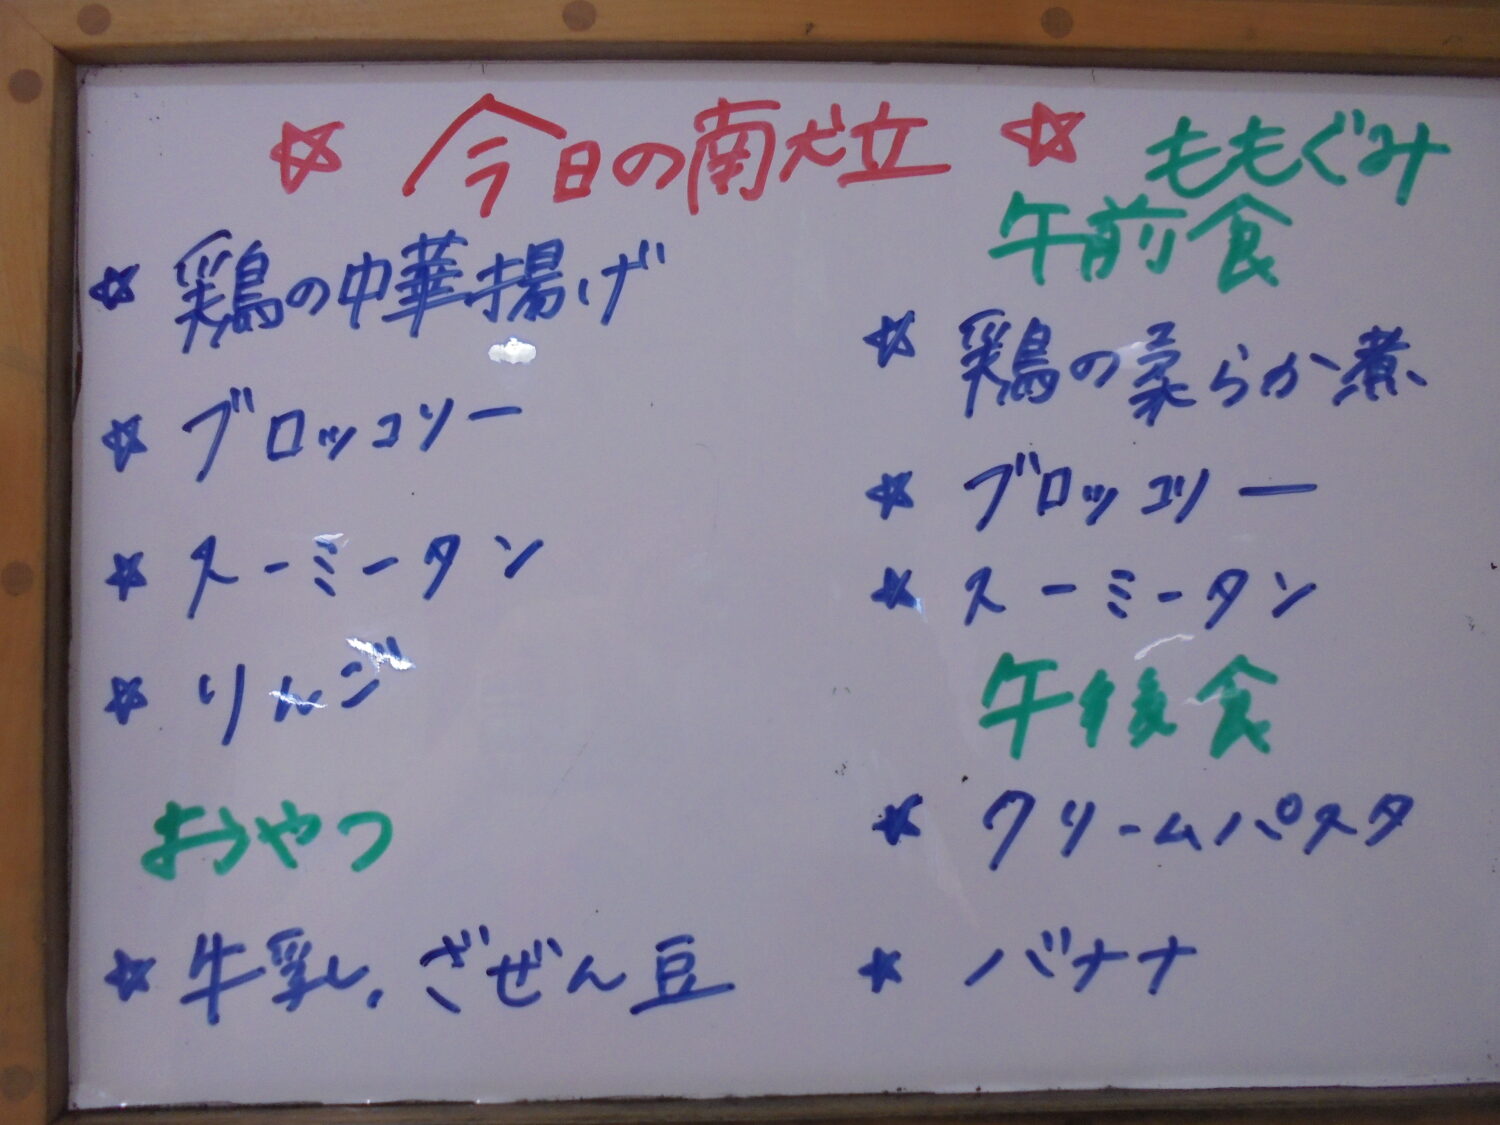 ☆ 今日の献立 ☆
☆ 鶏の中華揚げ
☆ ブロッコリー
☆ スーミータン
☆ りんご
おやつ
☆ 牛乳、ざぜん豆
ももぐみ
午前食
☆ 鶏の柔らか煮
☆ ブロッコリー
☆ スーミータン
午後食
☆ クリームパスタ
☆ バナナ